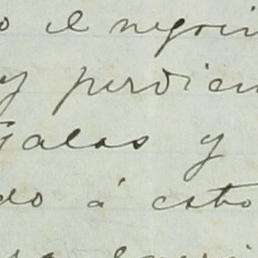 o el negoci
y perdien
Galas y
do á esto